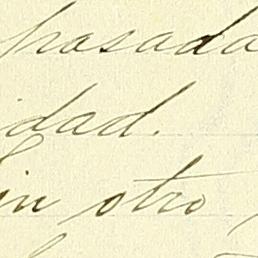 pasada
idad.
in otro